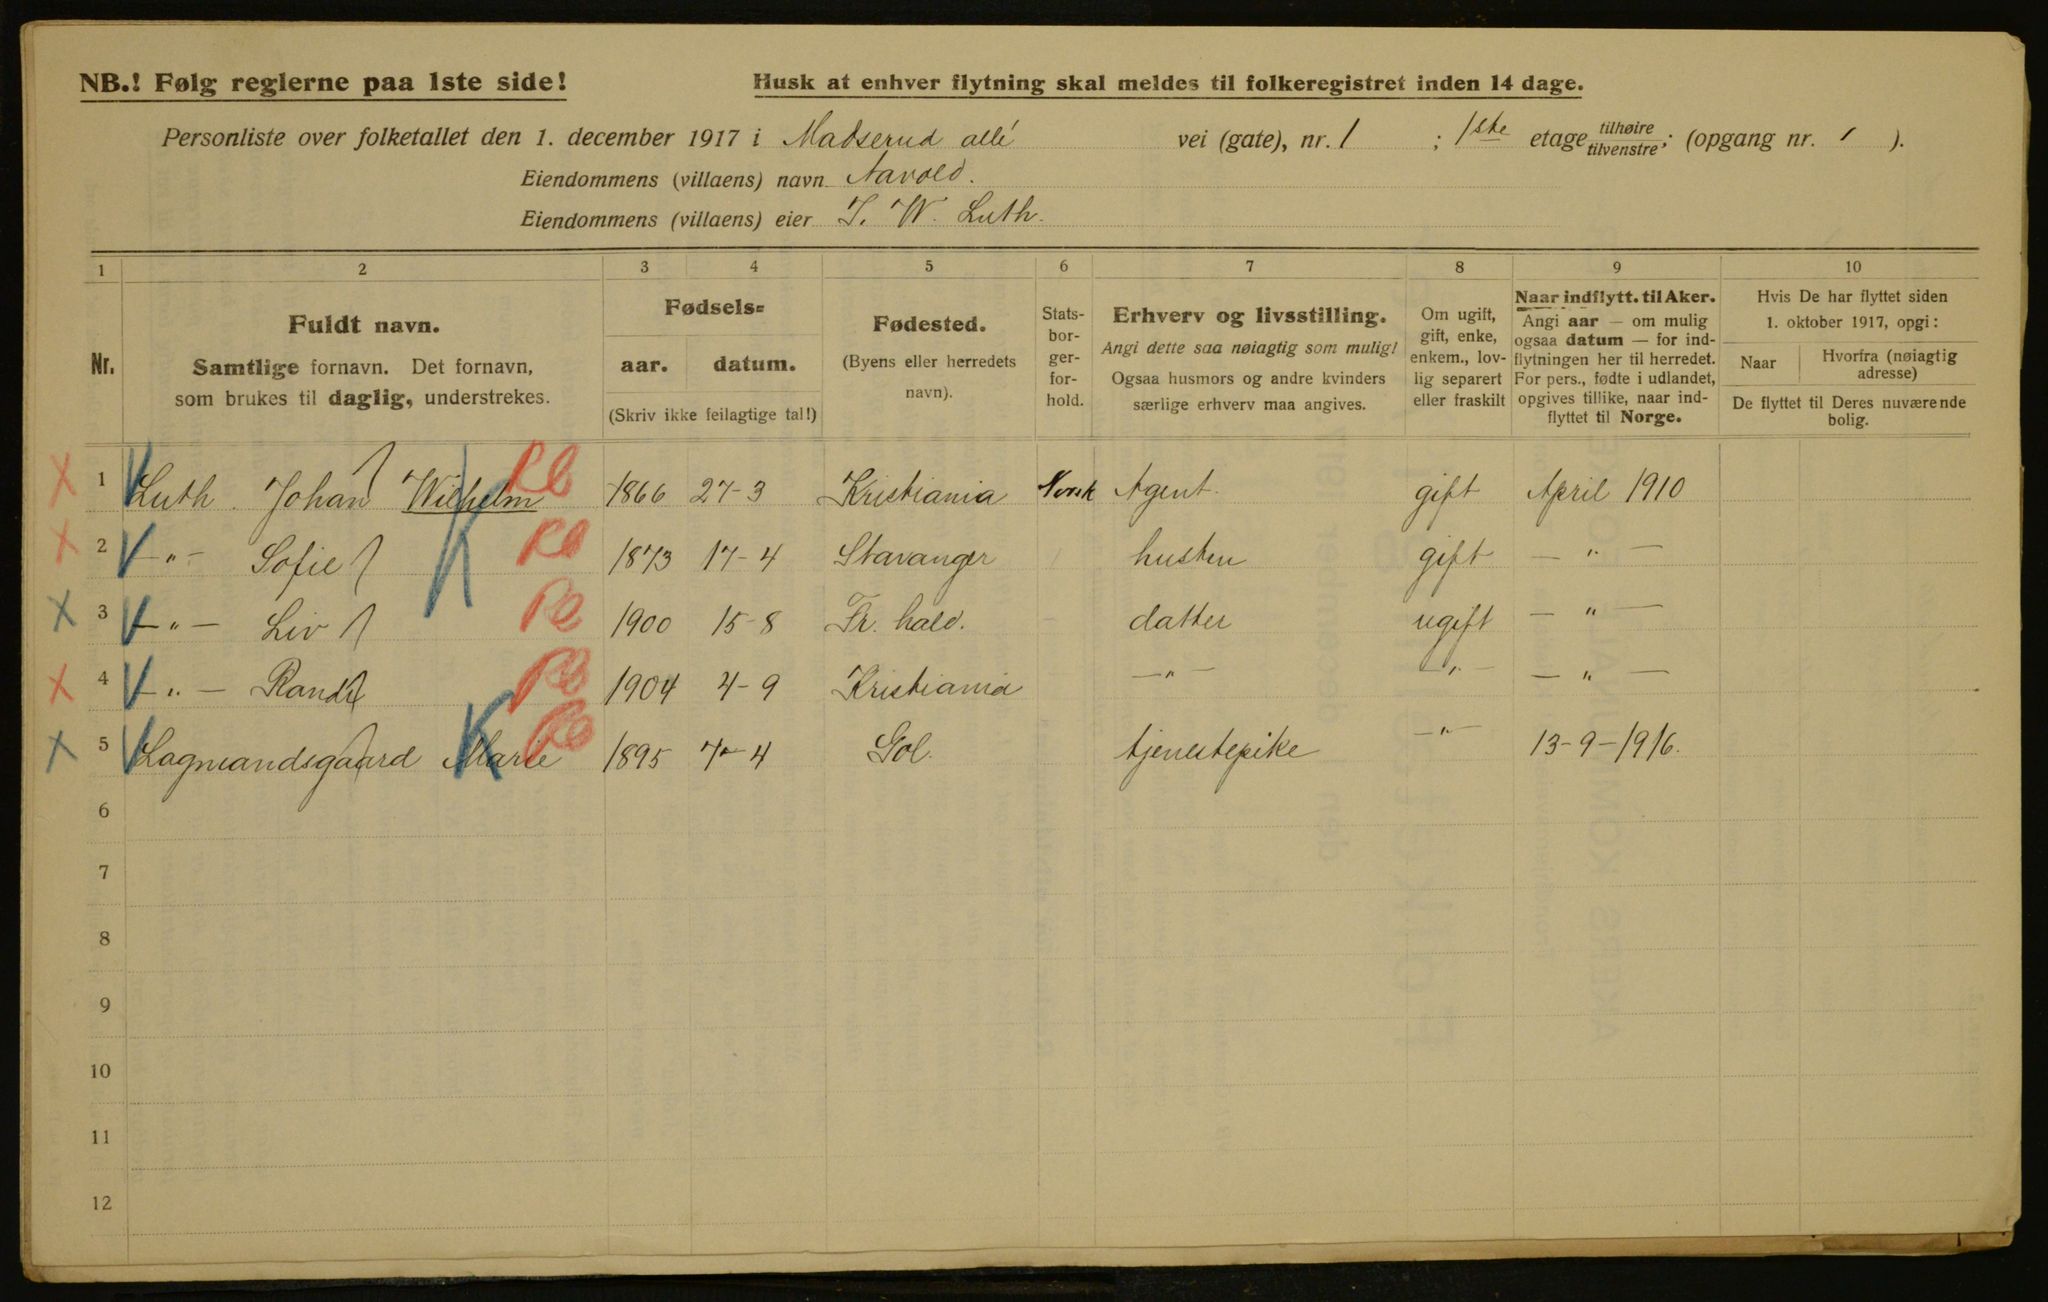 NB.! Følg reglerne paa 1ste side! Husk at enhver flytning skal meldes til folkeregistret inden 14 dage.
Personliste over folketallet den 1. december 1917 i Madserud allé vei (gate), nr. 1 ; 1ste etage tilhøire tilvenstre; (opgang nr. 1 ).
Eiendommens (villaens) navn Aavold.
Eiendommens (villaens) eier J. W. Luth.
1 2 3 4 5 6 7 8 9 10
Nr.
Fuldt navn.
Samtlige fornavn. Det fornavn,
som brukes til daglig, understrekes.
Fødsels-
aar. datum.
(Skriv ikke feilagtige tal!)
Fødested.
(Byens eller herredets
navn).
Stats-
bor-
ger-
for-
hold.
Erhverv og livsstilling.
Angi dette saa nøiagtig som mulig!
Ogsaa husmors og andre kvinders
særlige erhverv maa angives.
Om ugift,
gift, enke,
enkem., lov-
lig separert
eller fraskilt
Naar indflytt. til Aker.
Angi aar — om mulig
ogsaa datum — for ind-
flytningen her til herredet.
For pers., fødte i udlandet,
opgives tillike, naar ind-
flyttet til Norge.
Hvis De har flyttet siden
1. oktober 1917, opgi:
Naar
Hvorfra (nøiagtig
adresse)
De flyttet til Deres nuværende
bolig.
1 Luth. Johan Wilhelm 1866 27-3 Kristiania Norsk Agent. gift April 1910
2 -"- Sofie 1873 17-4 Stavanger hustru gift -"-
3 -"- Liv 1900 15-8 Fr. hald. datter ugift -"-
4 -"- Randi 1904 4-9 Kristiania -"- -"- -"-
5 Lagmandsgaard Marie 1895 7-4 Gol. tjenestepike -"- 13-9-1916.
6
7
8
9
10
11
12